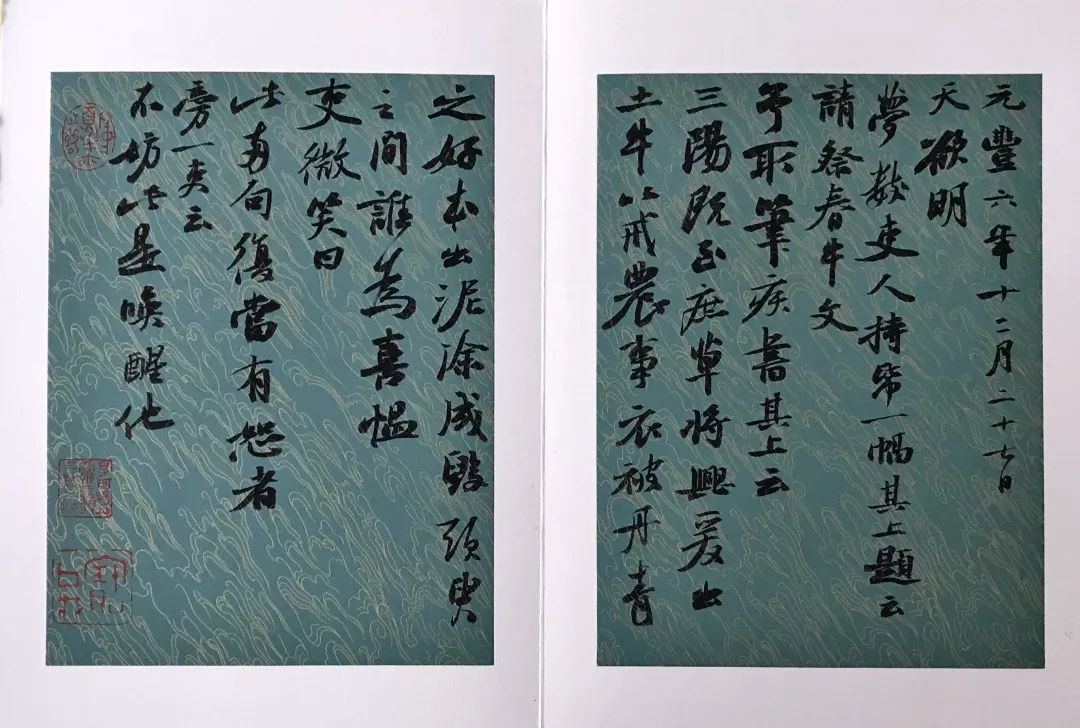 元豐六年十二月二十七日
天欲明
夢數吏人持帋一幅其上題云
請祭春牛文
予取筆疾書其上云
三陽既至庶草將興爰出
土牛以戒農事衣被丹青
之好本出泥涂成毀須臾
之間誰為喜愠
吏微笑曰
此兩句復當有怒者
旁一吏云
不妨此是喚醒他